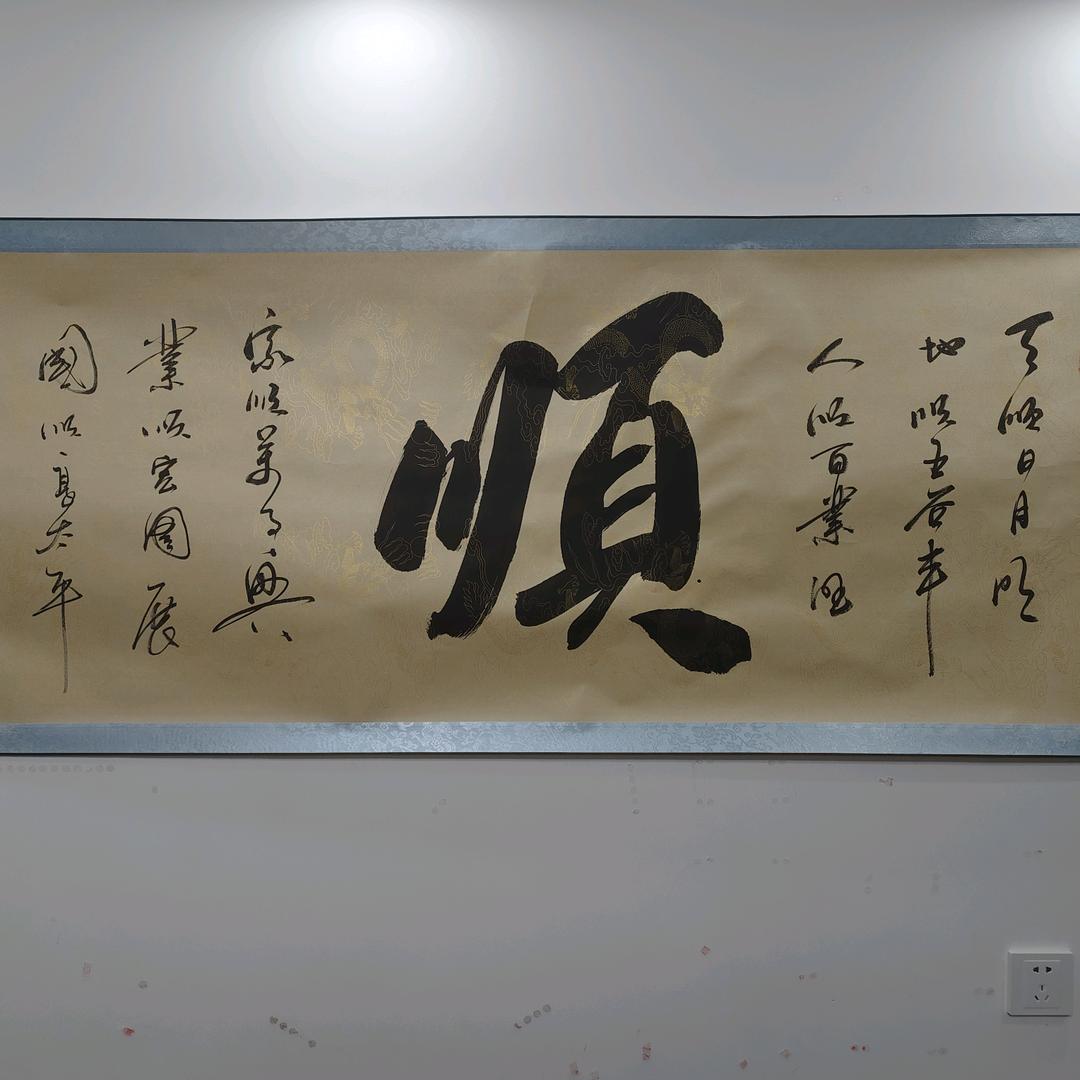 天順日月明
地順五谷丰
人順百業旺
順
家順萬事興
業順宏圖展
國順享太平